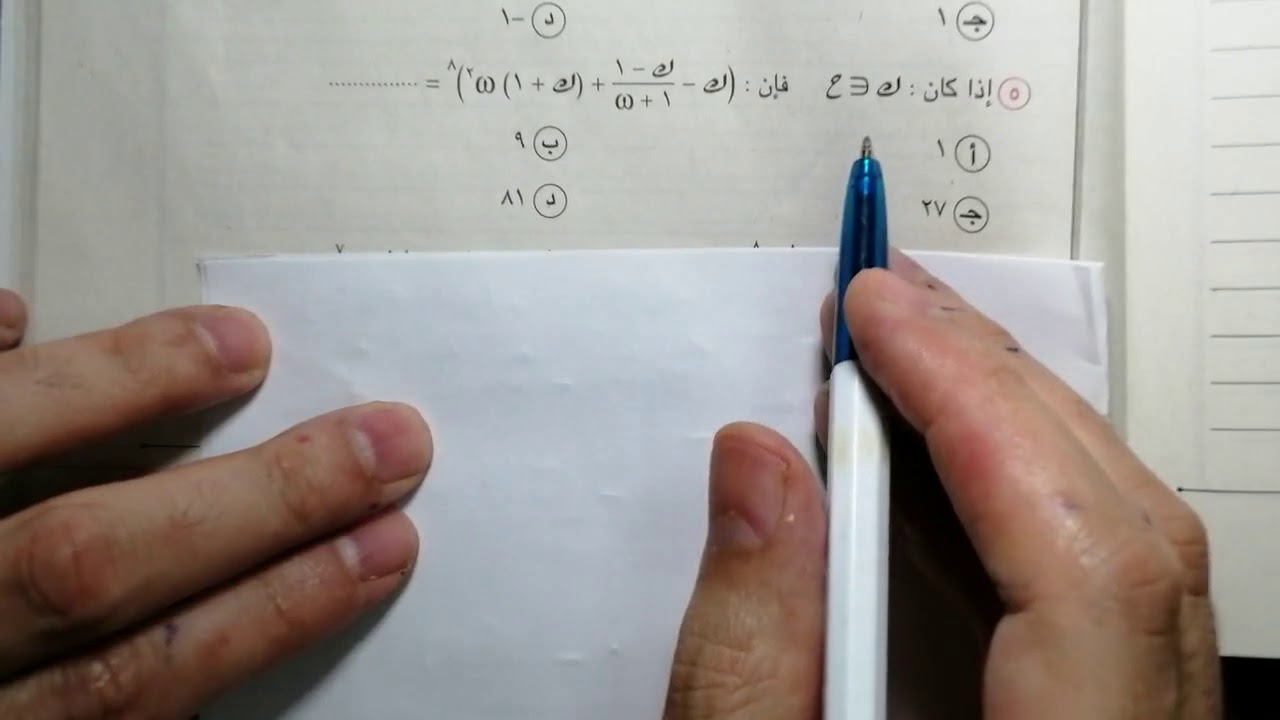 ج ١ د -١
٥ إذا كان : ك ∈ ح فإن : (ك - (ك - ١)/(ω + ١) + (ك + ١) ω^٢)^٨ = ................
أ ١ ب ٩
ج ٢٧ د ٨١